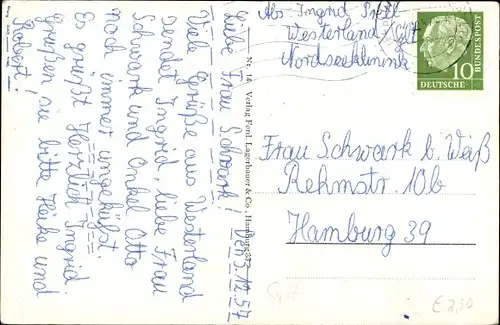 Liebe Frau Schwark! Den 3.12.57
Viele Grüße aus Westerland
sendet Ingrid, liebe Frau
Schwark und Onkel Otto
noch immer ungeküßt.
Es grüßt Herzlich Ingrid
Grüßen sie bitte Heike und
Robert!
Nr. 14 Verlag Ferd. Lagerbauer & Co., Hamburg
Abs. Ingrid
Westerland/Sylt
Nordseeklinik
10
DEUTSCHE
BUNDESPOST
Frau Schwark b. Weiß
Rehmstr. 10b
Hamburg 39
Sylt